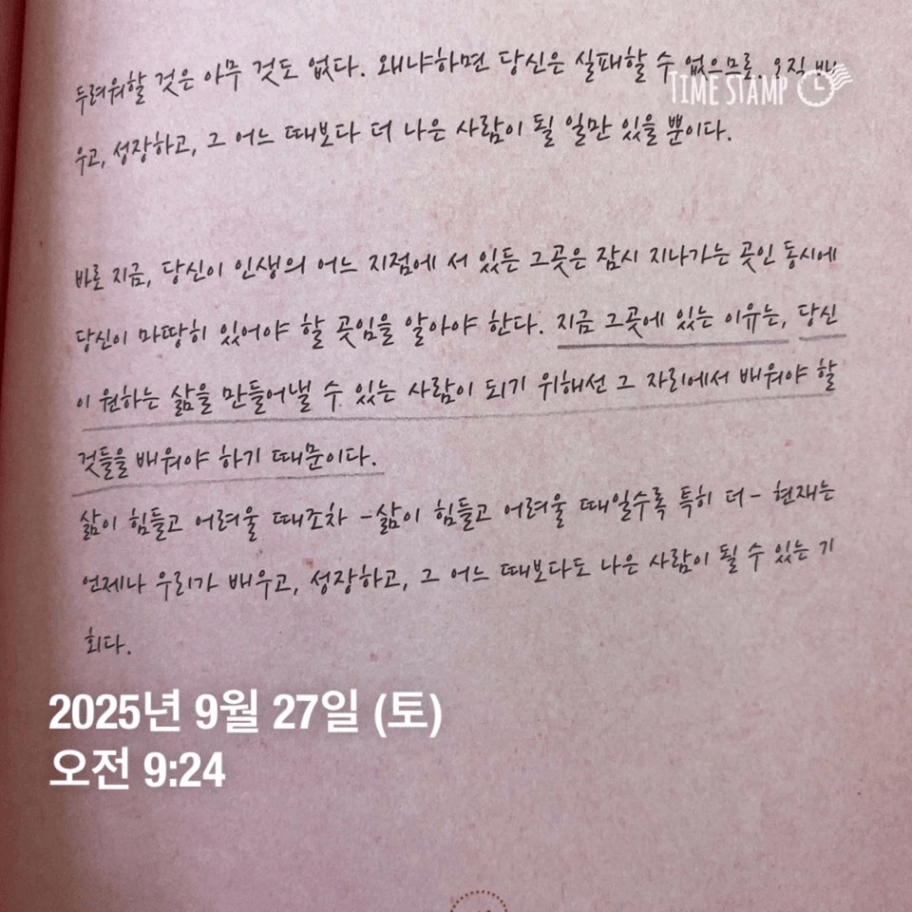 두려워할 것은 아무 것도 없다. 왜냐하면 당신은 실패할 수 없으므로. 오직 배
TIME STAMP
우고, 성장하고, 그 어느 때보다 더 나은 사람이 될 일만 있을 뿐이다.
바로 지금, 당신이 인생의 어느 지점에 서 있든 그곳은 잠시 지나가는 곳인 동시에
당신이 마땅히 있어야 할 곳임을 알아야 한다. 지금 그곳에 있는 이유는, 당신
이 원하는 삶을 만들어낼 수 있는 사람이 되기 위해선 그 자리에서 배워야 할
것들을 배워야 하기 때문이다.
삶이 힘들고 어려울 때조차 -삶이 힘들고 어려울 때일수록 특히 더- 현재는
언제나 우리가 배우고, 성장하고, 그 어느 때보다도 나은 사람이 될 수 있는 기
회다.
2025년 9월 27일 (토)
오전 9:24